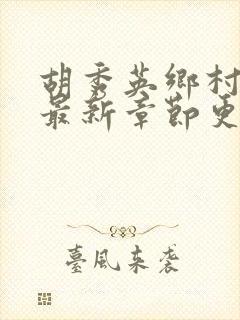 胡秀英鄉村
最新章節更
臺風來襲